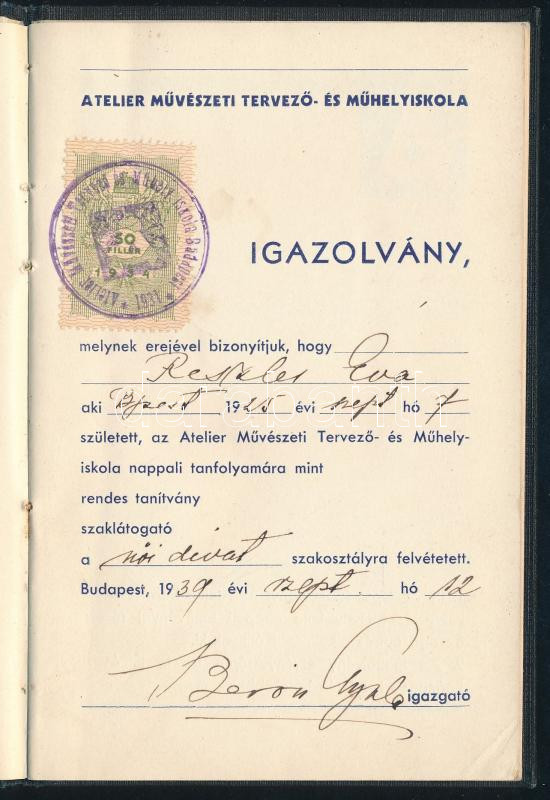 ATELIER MŰVÉSZETI TERVEZŐ- ÉS MŰHELYISKOLA
50
FILLÉR
1934
IGAZOLVÁNY,
melynek erejével bizonyítjuk, hogy
Éva
aki Bpest 1925 évi szept hó 7
született, az Atelier Művészeti Tervező- és Műhely-
iskola nappali tanfolyamára mint
rendes tanítvány
szaklátogató
a női divat szakosztályra felvétetett.
Budapest, 1939 évi szept. hó 12
igazgató